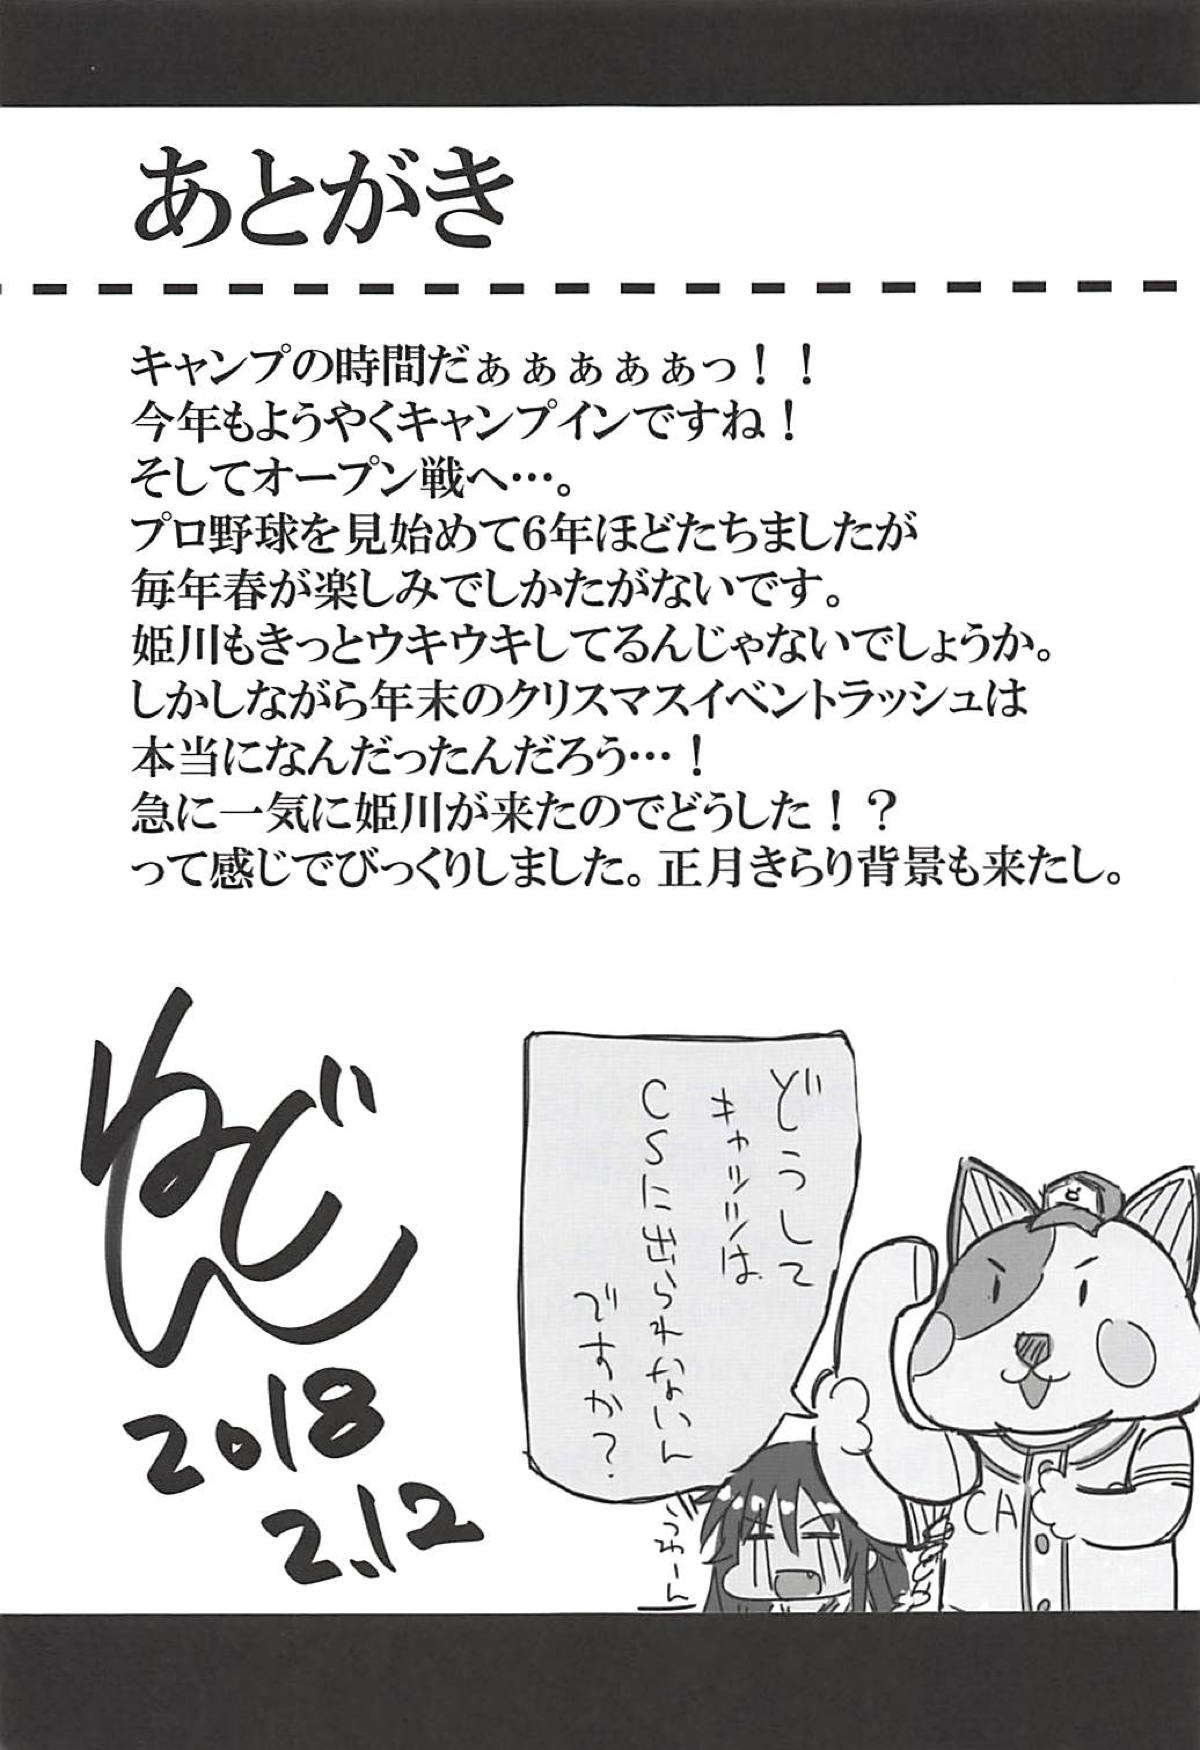 あとがき
キャンプの時間だぁぁぁぁぁっ！！
今年もようやくキャンプインですね！
そしてオープン戦へ…。
プロ野球を見始めて6年ほどたちましたが
毎年春が楽しみでしかたがないです。
姫川もきっとウキウキしてるんじゃないでしょうか。
しかしながら年末のクリスマスイベントラッシュは
本当になんだったんだろう…！
急に一気に姫川が来たのでどうした！？
って感じでびっくりしました。正月きらり背景も来たし。
どうして
キャッツは
CSに出られないん
ですか？
うわーん
CA
ねどん
2018
2.12